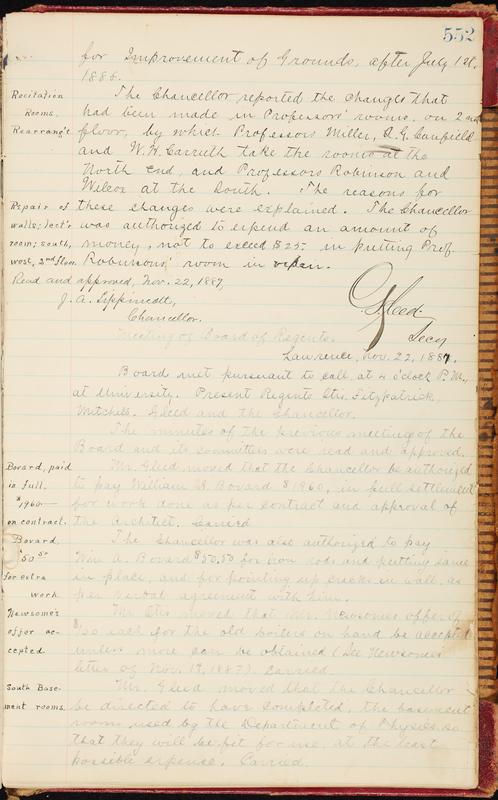 552
for Improvement of Grounds, after July 1st,
1888.
Recitation Rooms. Rearrang't
The Chancellor reported the changes that
had been made in Professors' rooms, on 2nd
floor, by which Professors Miller, Canfield
and W. H. Carruth take the rooms at the
North end, and Professors Robinson and
Wilcox at the South. The reasons for
Repair of walls; lect'r room; south, west, 2nd floor
these changes were explained. The Chancellor
was authorized to expend an amount of
money, not to exceed $25- in putting Prof
Robinson's room in repair.
Read and approved, Nov. 22, 1887,
J. A. Lippincott,
Chancellor.
Gleed.
Secy
Meeting of Board of Regents.
Lawrence, Nov. 22, 1887.
Board met pursuant to call, at 4 o'clock P. M.,
at University. Present Regents Otis, Fitzpatrick,
Mitchell, Gleed and the Chancellor.
The minutes of the previous meeting of the
Board and its committees were read and approved.
Bovard, paid in full. $1960— on contract.
Mr. Gleed moved that the Chancellor be authorized
to pay William Bovard $1960, in full settlement
for work done as per contract and approval of
the Architect. Carried
Bovard, $50 50 for extra work
The Chancellor was also authorized to pay
Wm A. Bovard $50.50 for iron rods and putting same
in place, and for pointing up cracks in wall, as
per verbal agreement with him.
Newsome's offer accepted
Mr. Otis moved that Mr. Newsome's offer of
each for the old boilers on hand be accepted
unless more can be obtained (See Newsome's
letter of Nov. 19, 1887). Carried.
South Basement rooms.
Mr. Gleed moved that the Chancellor
be directed to have completed, the basement
rooms used by the Department of Physics, so
that they will be fit for use, at the least
possible expense. Carried.